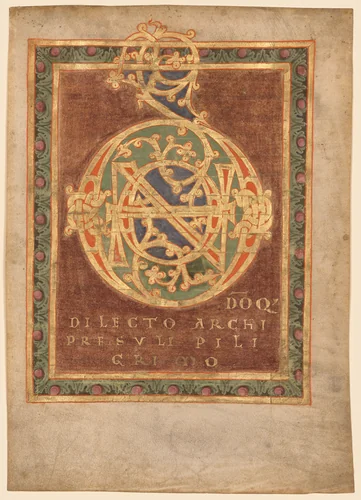 DŌQ;
DILECTO ARCHI
PRESVLI PILI
GRIMO